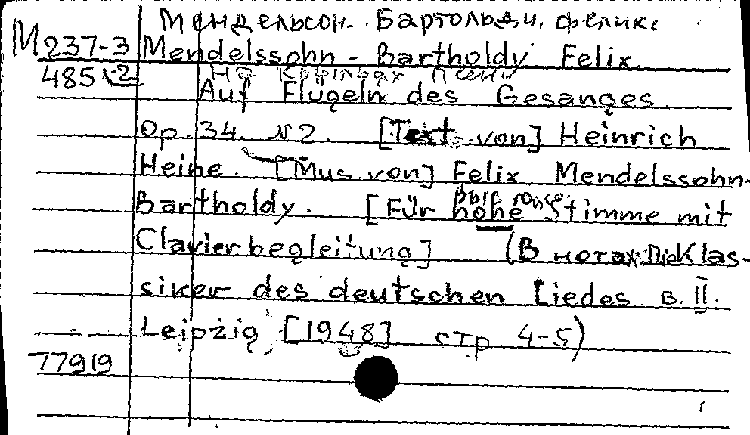 Мендельсон-Бартольди, Феликс
M 237-3 Mendelssohn-Bartholdy Felix
485\2 На крыльях песни
Auf Flügeln des Gesanges
Op. 34. N2. [Text von] Heinrich
Heine. [Mus von] Felix Mendelssohn-
Bartholdy. [Für hohe Stimme mit
Clavierbegleitung] (В нотах: Die Klas-
siker des deutschen Liedes B. II.
Leipzig, [1948] стр 4-5)
77919